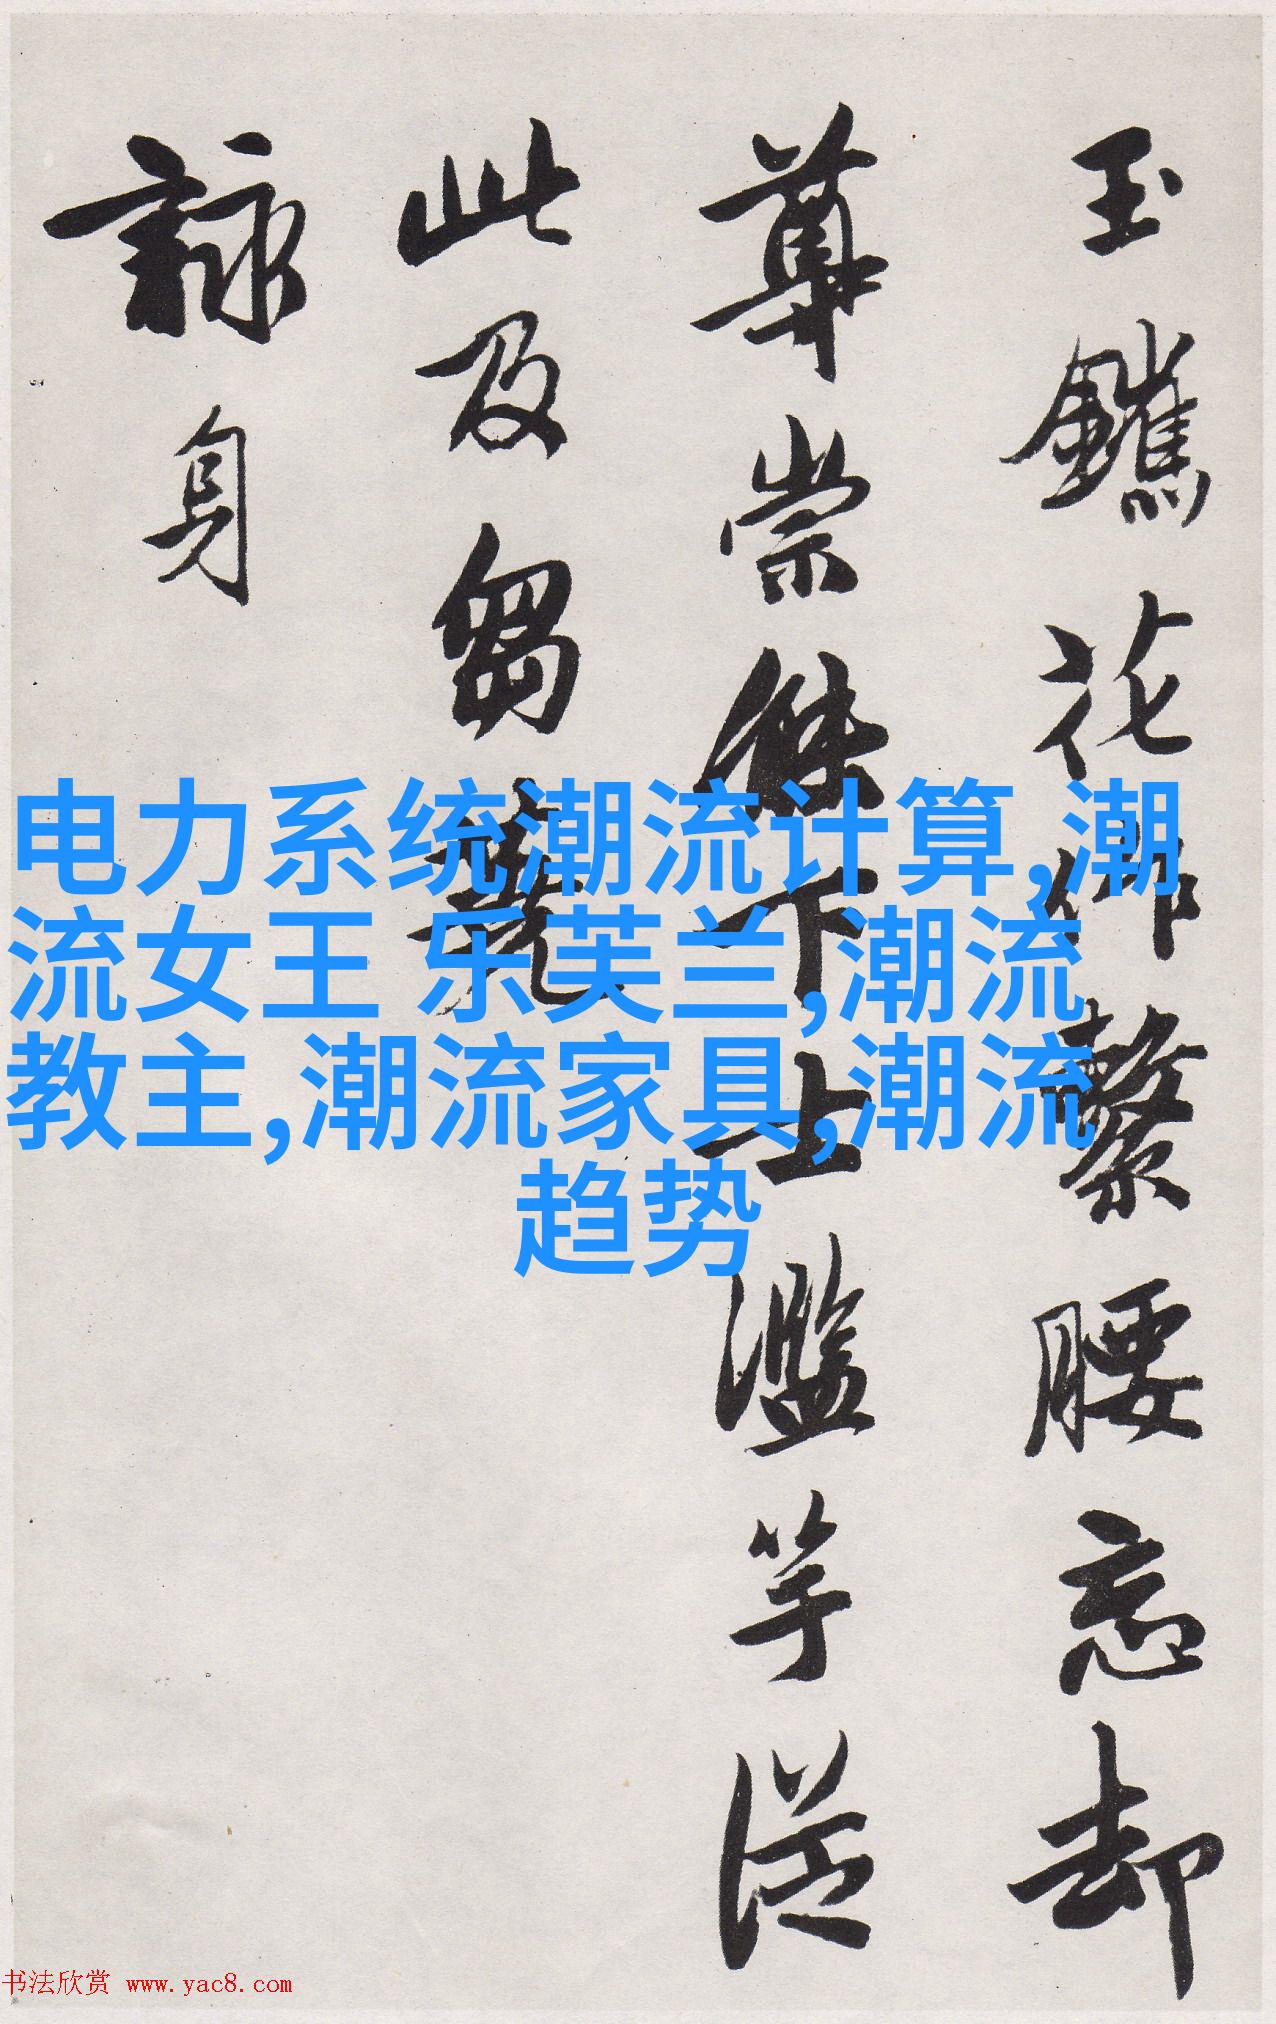 玉鑣花作繫腰忘却
尊崇傑下士濫竽從
此及芻蕘
詠身
电力系统潮流计算,潮
流女王 乐芙兰,潮流
教主,潮流家具,潮流
趋势
书法欣赏 www.yac8.com